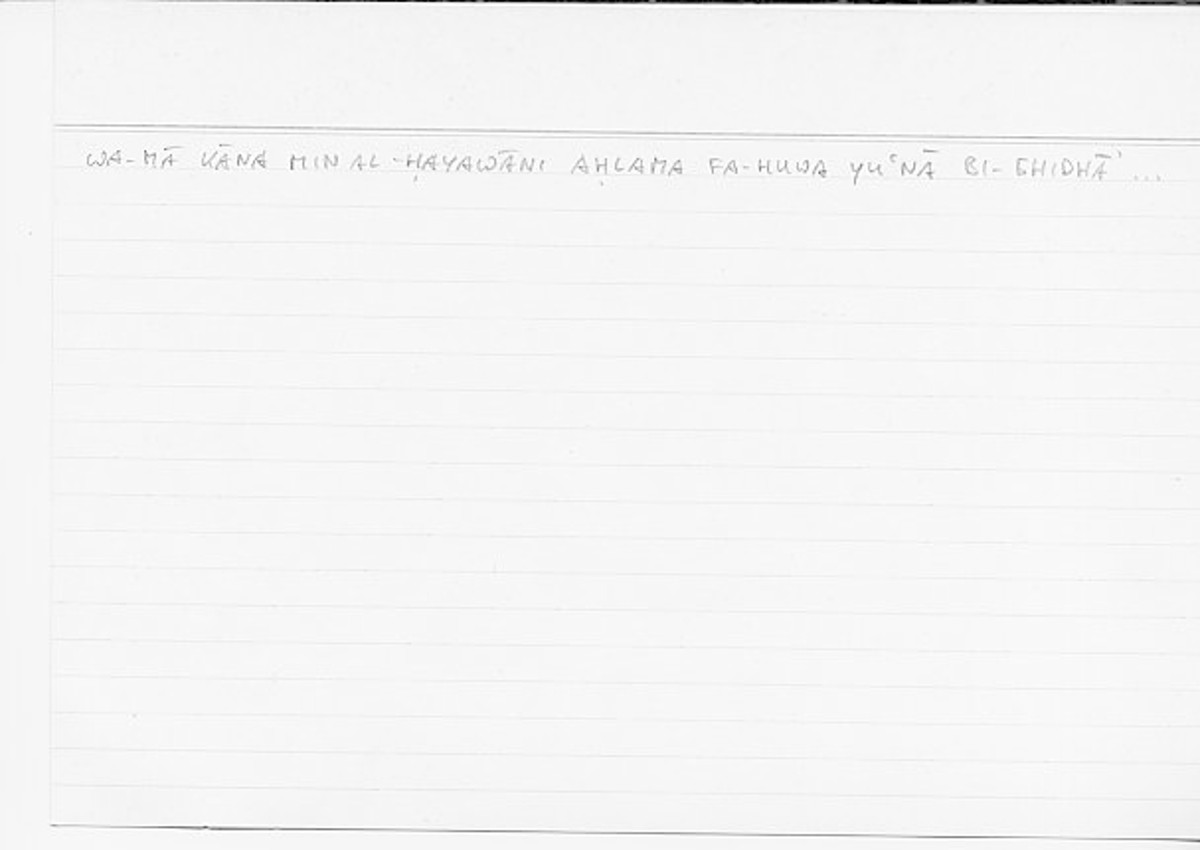 WA-MĀ KĀNA MIN AL-ḤAYAWĀNI AḤLAMA FA-HUWA YUʿNĀ BI-GHIDHĀʾ ...